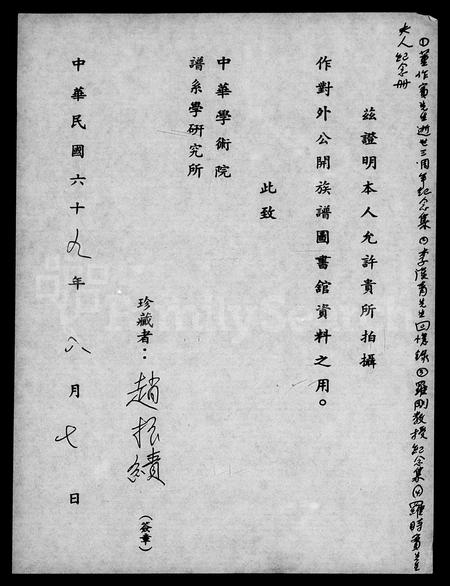 ①董作賓先生逝世三周年紀念集②李漢青先生回憶錄③羅剛教授紀念集④羅時實先生
夫人紀念册
茲證明本人允許貴所拍攝
作對外公開族譜圖書館資料之用。
此致
中華學術院
譜系學研究所
珍藏者：趙振績（簽章）
中華民國六十九年八月七日